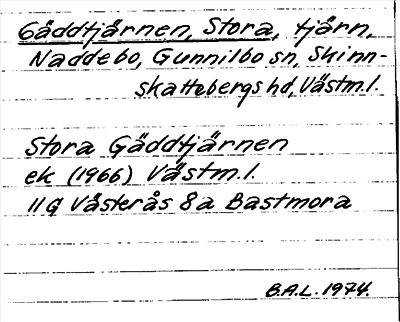 Gäddtjärnen, Stora, tjärn,
Naddebo, Gunnilbo sn, Skinn-
skattebergs hd, Västm.l.
Stora Gäddtjärnen
ek (1966) Västm.l.
11G Västerås 8a Bastmora
B.A.L. 1974.